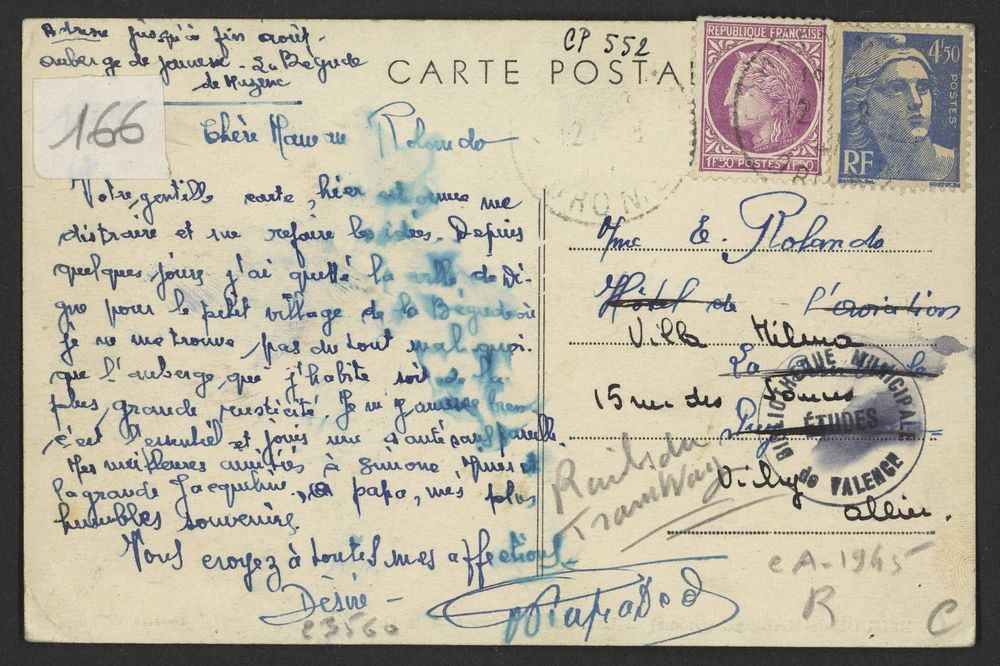 Adresse jusqu'à fin août -
auberge de jeunesse - La Bégude
de Mazenc
166
CP 552
CARTE POSTA
REPUBLIQUE FRANÇAISE
1F50 POSTES 1F50
4F50
POSTES
RF
Chère Maman Rolando
Votre gentille carte, hier est venue me
distraire et me refaire les idées. Depuis
quelques jours j'ai quitté la ville de Di-
gne pour le petit village de la Bégude où
je ne me trouve pas du tout mal quoi-
que l'auberge que j'habite soit de la
plus grande rusticité. Je m'y amuse bien
c'est l'essentiel et jouis une santé sans pareille.
Mes meilleures amitiés à Simone, Yves et
la grande Jacqueline, à papa, mes plus
humbles souvenirs.
Vous croyez à toutes mes affections.
Désiré -
e3560
Mme E. Rolando
Hôtel de l'aviation
Villa Milena
La
15 rue des
Puy
Vichy
Allier.
BIBLIOTHEQUE MUNICIPALE
ÉTUDES
de VALENCE
Rails du
Tramway
eA-1945
R
C